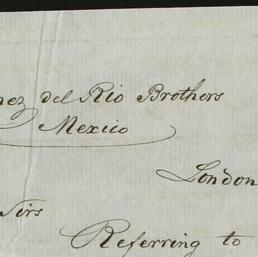 nez del Rio Brothers
Mexico
London
Sirs
Referring to